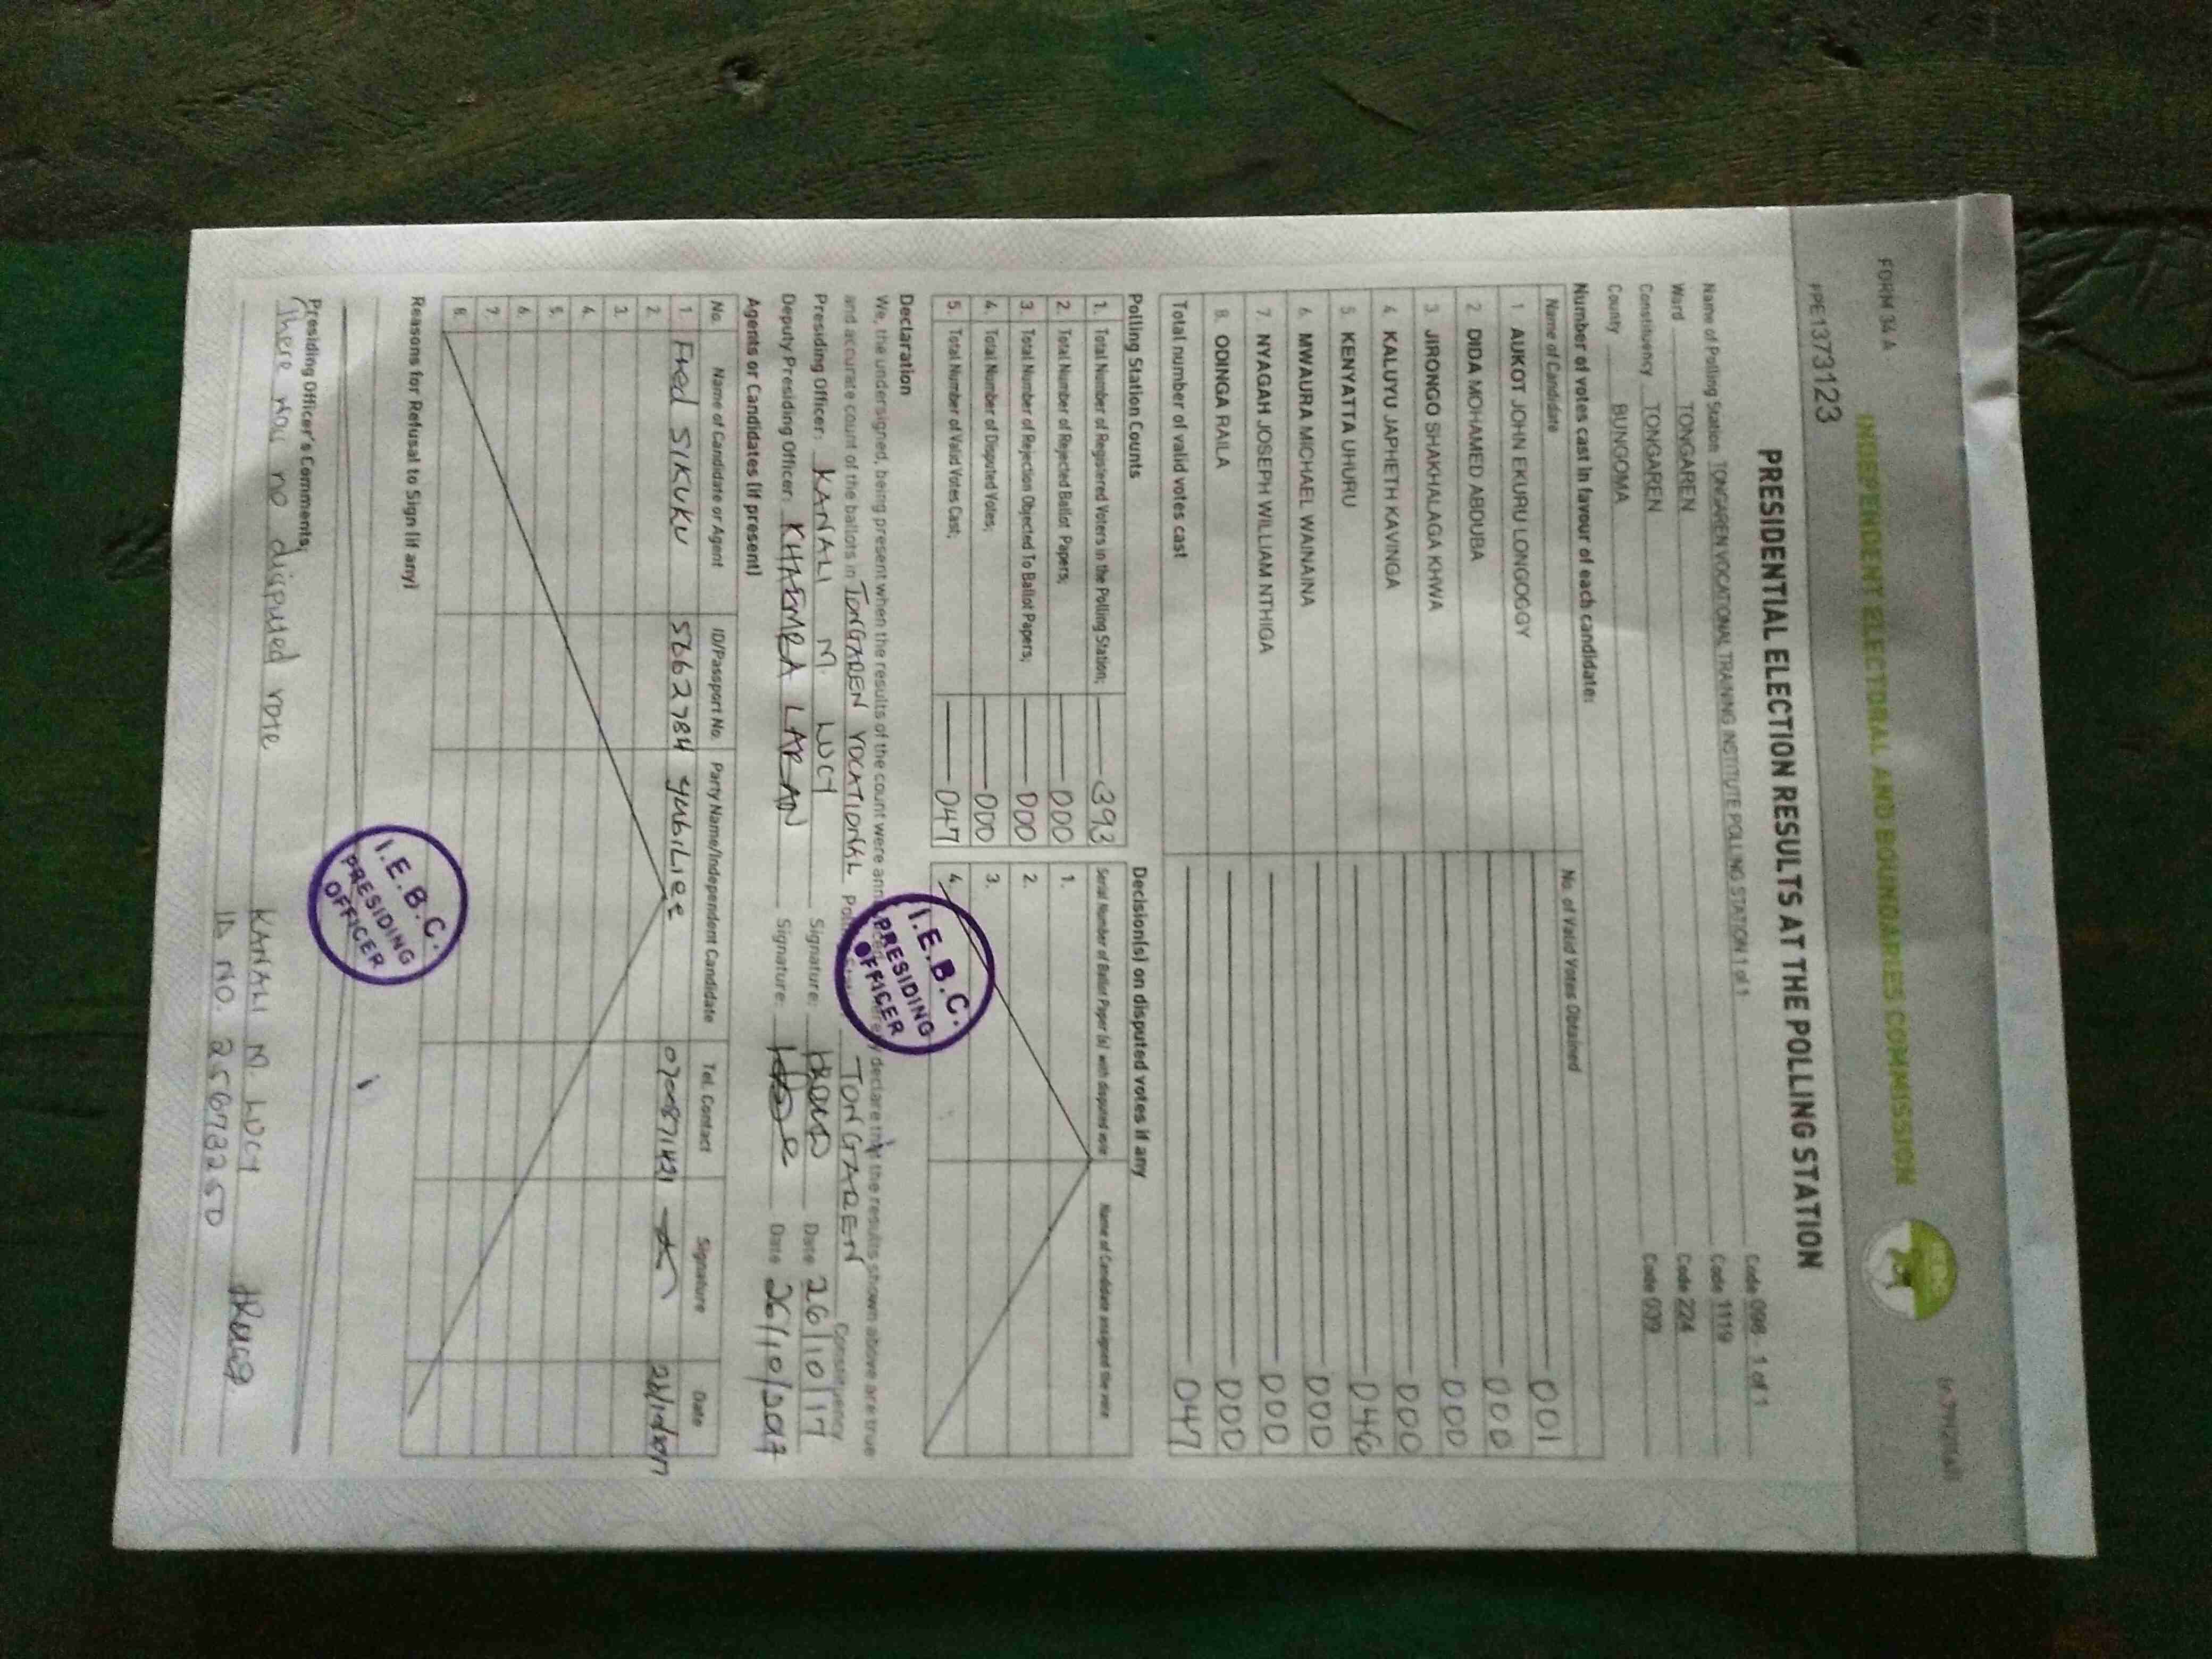 FORM 34 A
INDEPENDENT ELECTORAL AND BOUNDARIES COMMISSION
PPE1373123
PRESIDENTIAL ELECTION RESULTS AT THE POLLING STATION
Name of Polling Station TONGAREN VOCATIONAL TRAINING INSTITUTE POLLING STATION 1 of 1 Code 098 - 1 of 1
Ward TONGAREN Code 1119
Constituency TONGAREN Code 224
County BUNGOMA Code 039
Number of votes cast in favour of each candidate:
Name of Candidate No. of Valid Votes Obtained
1 AUKOT JOHN EKURU LONGOGGY 001
2 DIDA MOHAMED ABDUBA 000
3 JIRONGO SHAKHALAGA KHWA 000
4 KALUYU JAPHETH KAVINGA 000
5 KENYATTA UHURU 046
6 MWAURA MICHAEL WAINAINA 000
7 NYAGAH JOSEPH WILLIAM NTHIGA 000
8. ODINGA RAILA 000
Total number of valid votes cast 047
Polling Station Counts
1. Total Number of Registered Voters in the Polling Station; 393
2. Total Number of Rejected Ballot Papers; 000
3. Total Number of Rejection Objected To Ballot Papers; 000
4. Total Number of Disputed Votes; 000
5. Total Number of Valid Votes Cast; 047
Decision(s) on disputed votes if any
Serial Number of Ballot Paper (s) with disputed vote Name of Candidate assigned the vote
1.
2.
3.
4.
I.E.B.C.
PRESIDING
OFFICER
Declaration
We, the undersigned, being present when the results of the count were declare that the results shown above are true
and accurate count of the ballots in TONGAREN VOCATIONAL TONGAREN Constituency
Presiding Officer: KANALI M. LUCY Signature: Date 26/10/17
Deputy Presiding Officer: KHAEMBA Signature: Date 26/10/2017
Agents or Candidates (if present)
No. Name of Candidate or Agent ID/Passport No. Party Name/Independent Candidate Tel. Contact Signature Date
1 Fred SIKUKU Jubilee
2.
3.
4.
5.
6.
7.
8.
Reasons for Refusal to Sign (if any)
I.E.B.C.
PRESIDING
OFFICER
Presiding Officer's Comments
There no disputed vote
KANALI M. LUCY
ID NO. 25673250